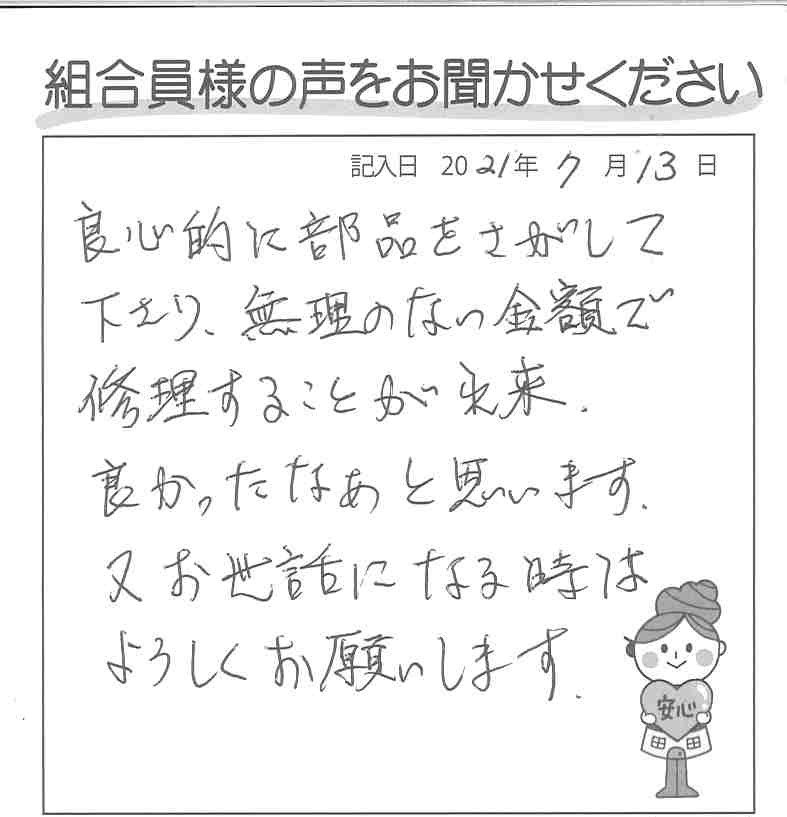 組合員様の声をお聞かせください
記入日 2021年 7月13日
良心的に部品をさがして
下さり、無理のない金額で
修理することが出来、
良かったなあと思います。
又お世話になる時は
よろしくお願いします。
安心